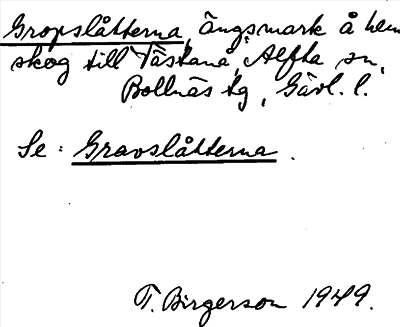 Gropslåtterna, ängsmark å hem
skog till Västanå, Alfta sn,
Bollnäs tg, Gävl. l.
Se: Gravslåtterna.
T. Birgerson 1949.